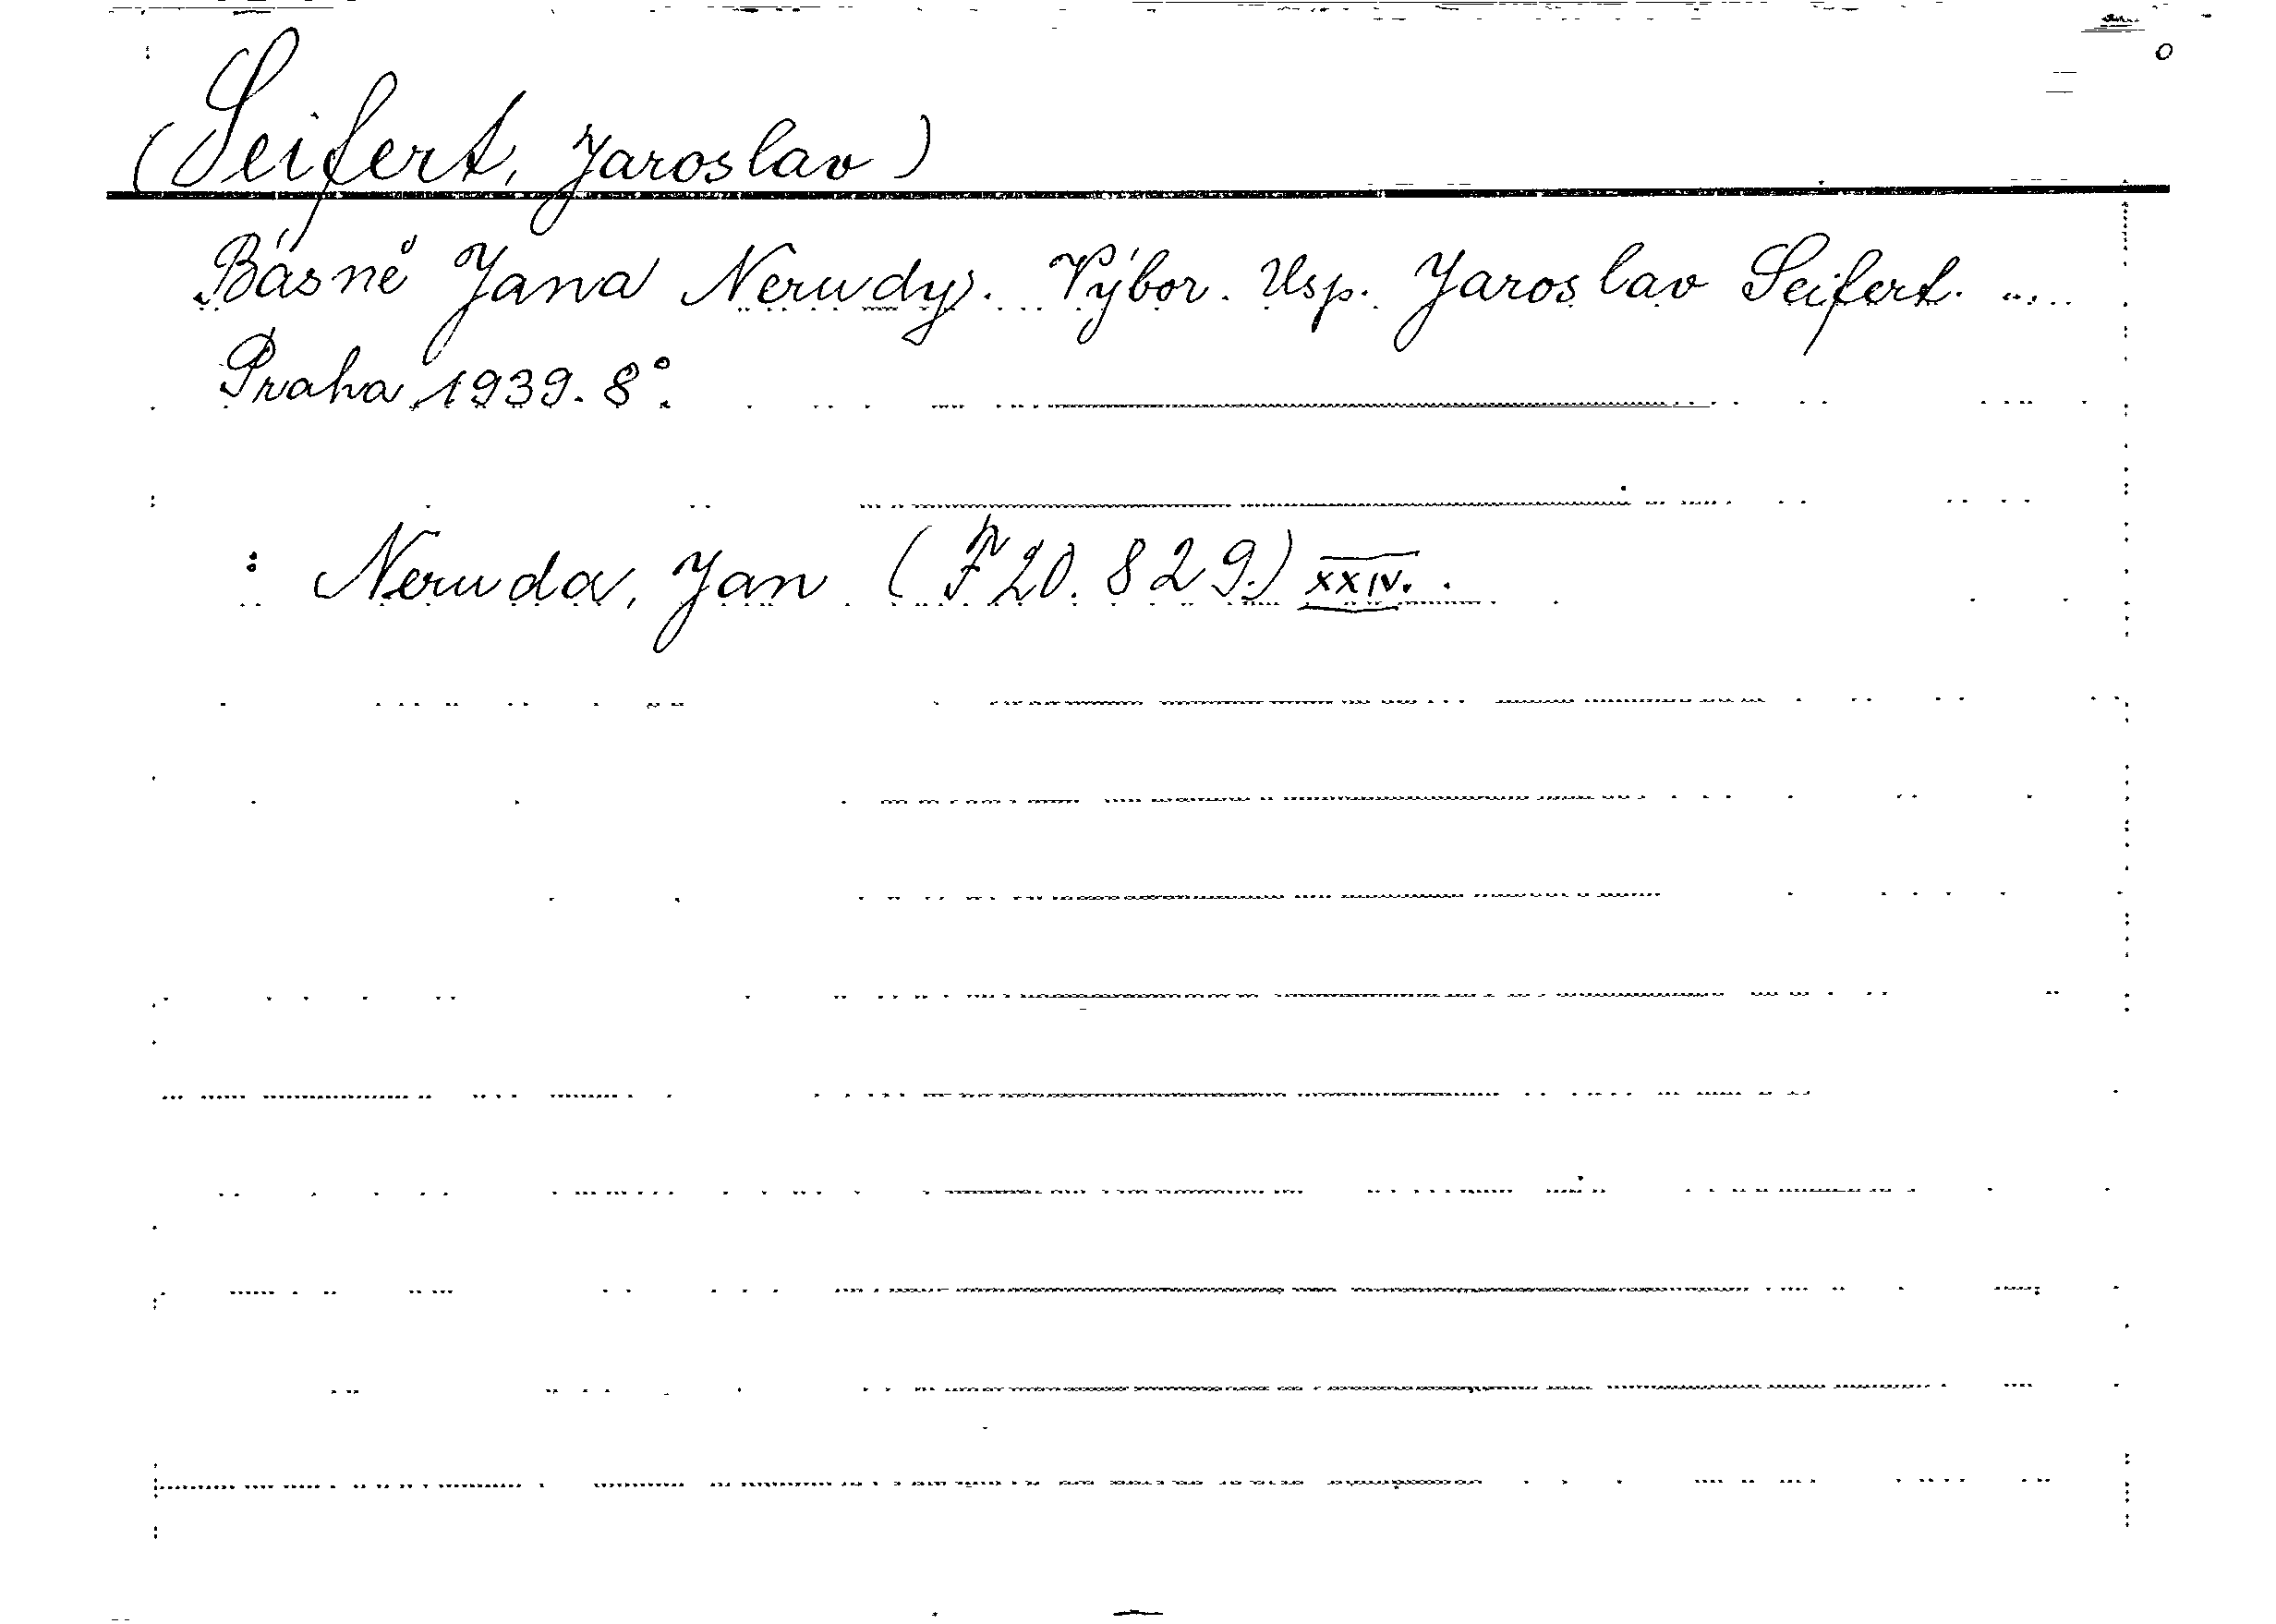 (Seifert, Jaroslav)
Básně Jana Nerudy. Výbor. Usp. Jaroslav Seifert. ...
Praha, 1939. 8°.
: Neruda, Jan (F 20.829.) XXIV.